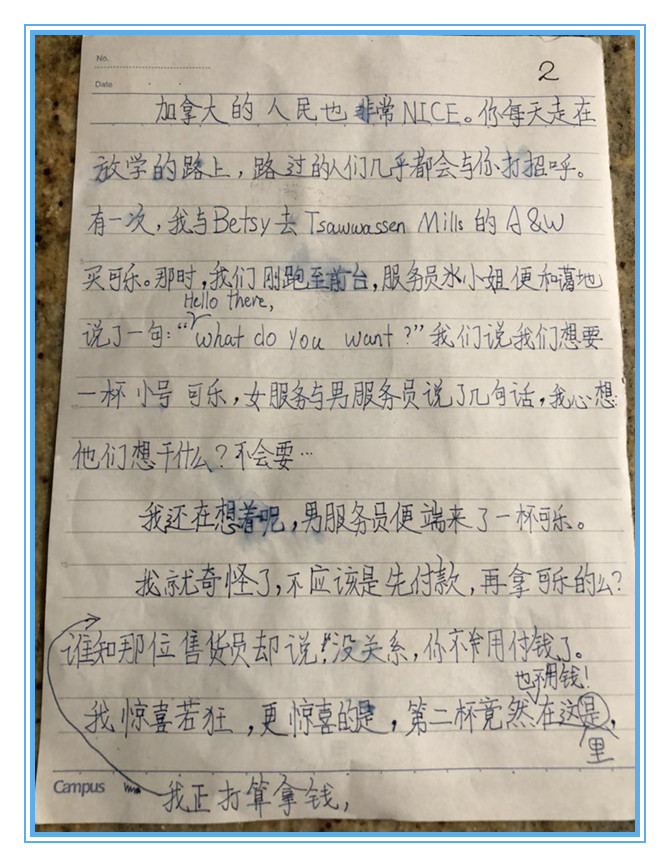 No.
Date
2
加拿大的人民也非常NICE。你每天走在
放学的路上，路过的人们几乎都会与你打招呼。
有一次，我与Betsy去 Tsawwassen Mills 的 A&W
买可乐。那时，我们刚跑至前台，服务员小姐便和蔼地
Hello there,
说了一句：“what do you want?”我们说我们想要
一杯小号可乐，女服务与男服务员说了几句话，我心想：
他们想干什么？不会要…
我还在想着呢，男服务员便端来了一杯可乐。
我就奇怪了，不应该是先付款，再拿可乐的么？
谁知那位售货员却说：“没关系，你不用付钱了。
也不用钱！
我惊喜若狂，更惊喜的是，第二杯竟然在这是，
里
Campus
我正打算拿钱，